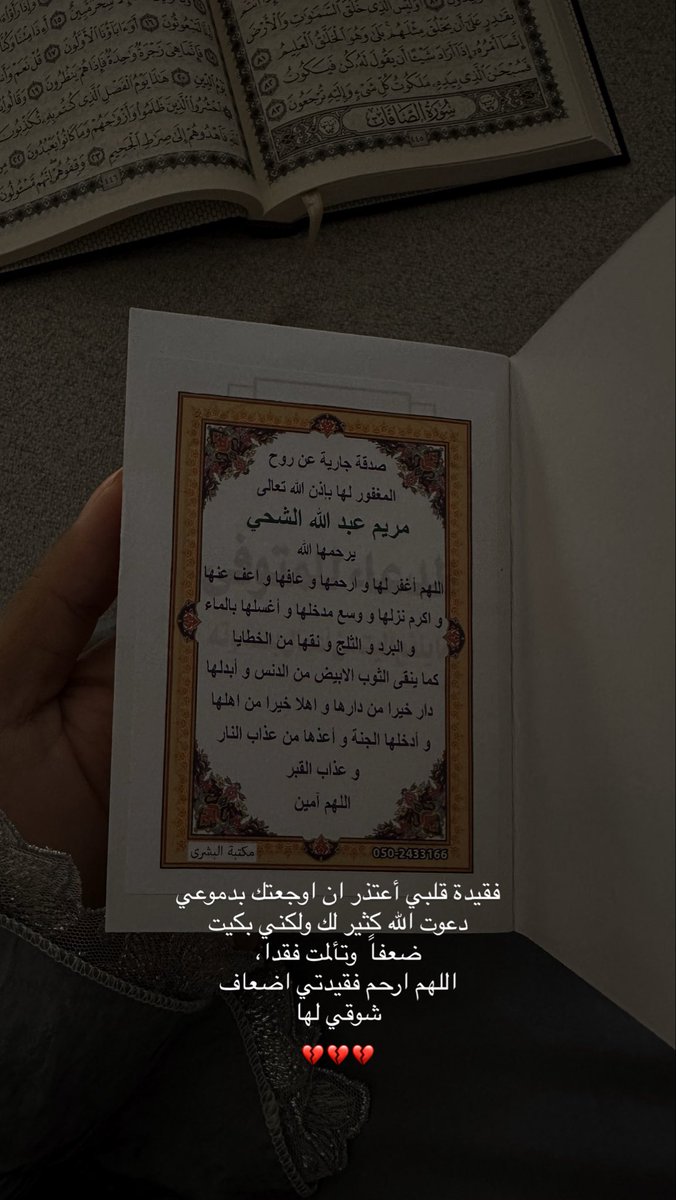 بِقَٰدِرٍ عَلَىٰٓ أَن يَخْلُقَ مِثْلَهُم بَلَىٰ وَهُوَ ٱلْخَلَّٰقُ ٱلْعَلِيمُ ٨١
إِنَّمَآ أَمْرُهُۥٓ إِذَآ أَرَادَ شَيْـًٔا أَن يَقُولَ لَهُۥ كُن فَيَكُونُ ٨٢
فَسُبْحَٰنَ ٱلَّذِى بِيَدِهِۦ مَلَكُوتُ كُلِّ شَىْءٍ وَإِلَيْهِ تُرْجَعُونَ ٨٣
سُورَةُ الصَّافَّاتِ
٤٤٥
٤٤٦
صدقة جارية عن روح
المغفور لها بإذن الله تعالى
مريم عبد الله الشحي
يرحمها الله
اللهم أغفر لها و أرحمها و عافها و اعف عنها
و اكرم نزلها و وسع مدخلها و أغسلها بالماء
و البرد و الثلج و نقها من الخطايا
كما ينقى الثوب الابيض من الدنس و أبدلها
دار خيرا من دارها و اهلا خيرا من اهلها
و أدخلها الجنة و أعذها من عذاب النار
و عذاب القبر
اللهم آمين
مكتبة البشرى
050-2433166
فقيدة قلبي أعتذر ان اوجعتك بدموعي
دعوت الله كثير لك ولكني بكيت
ضعفاً وتألمت فقدا،
اللهم ارحم فقيدتي اضعاف
شوقي لها
💔💔💔